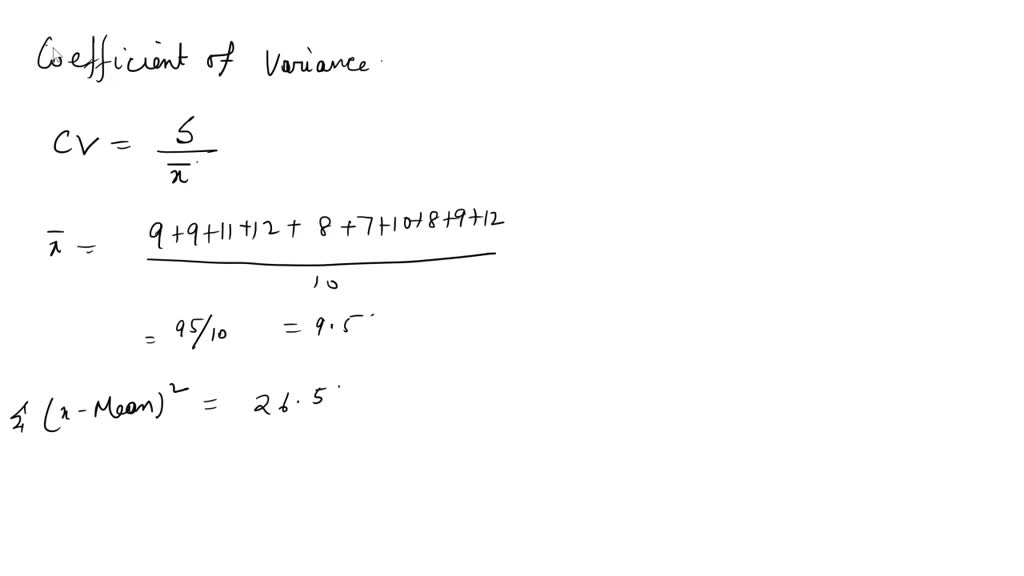 Coefficient of Variance.
CV = S / x̄
x̄ = 9+9+11+12+8+7+10+8+9+12 / 10
= 95/10 = 9.5
Σ(x-Mean)² = 26.5